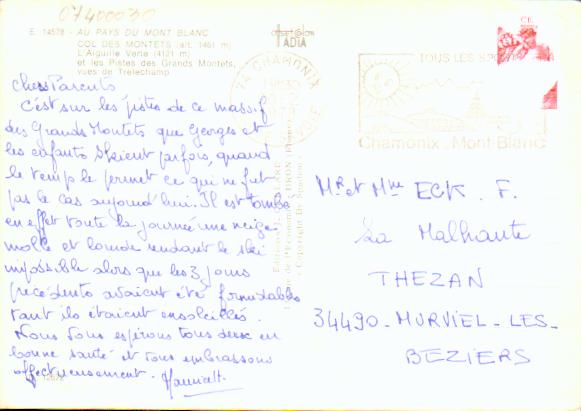 07400030
E. 14578 - AU PAYS DU MONT BLANC
COL DES MONTETS (alt. 1461 m)
L'Aiguille Verte (4121 m)
et les Pistes des Grands Montets,
vues de Trelechamp
Chers Parents
C'est sur les pistes de ce massif
des Grands Montets que Georges et
les enfants skient parfois, quand
le temps le permet ce qui ne fut
pas le cas aujourd'hui. Il est tombé
en effet toute la journée une neige
molle et lourde rendant le ski
impossible alors que les 3 jours
précédents avaient été formidables
tant ils étaient ensoleillés.
Nous vous espérons tous deux en
bonne santé et vous embrassons
affectueusement.
12672
74 CHAMONIX
TOUS LES SPORTS
Chamonix Mont-Blanc
Mr et Mme ECK. F.
La Malhaute
THEZAN
34490 - MURVIEL - LES -
BEZIERS